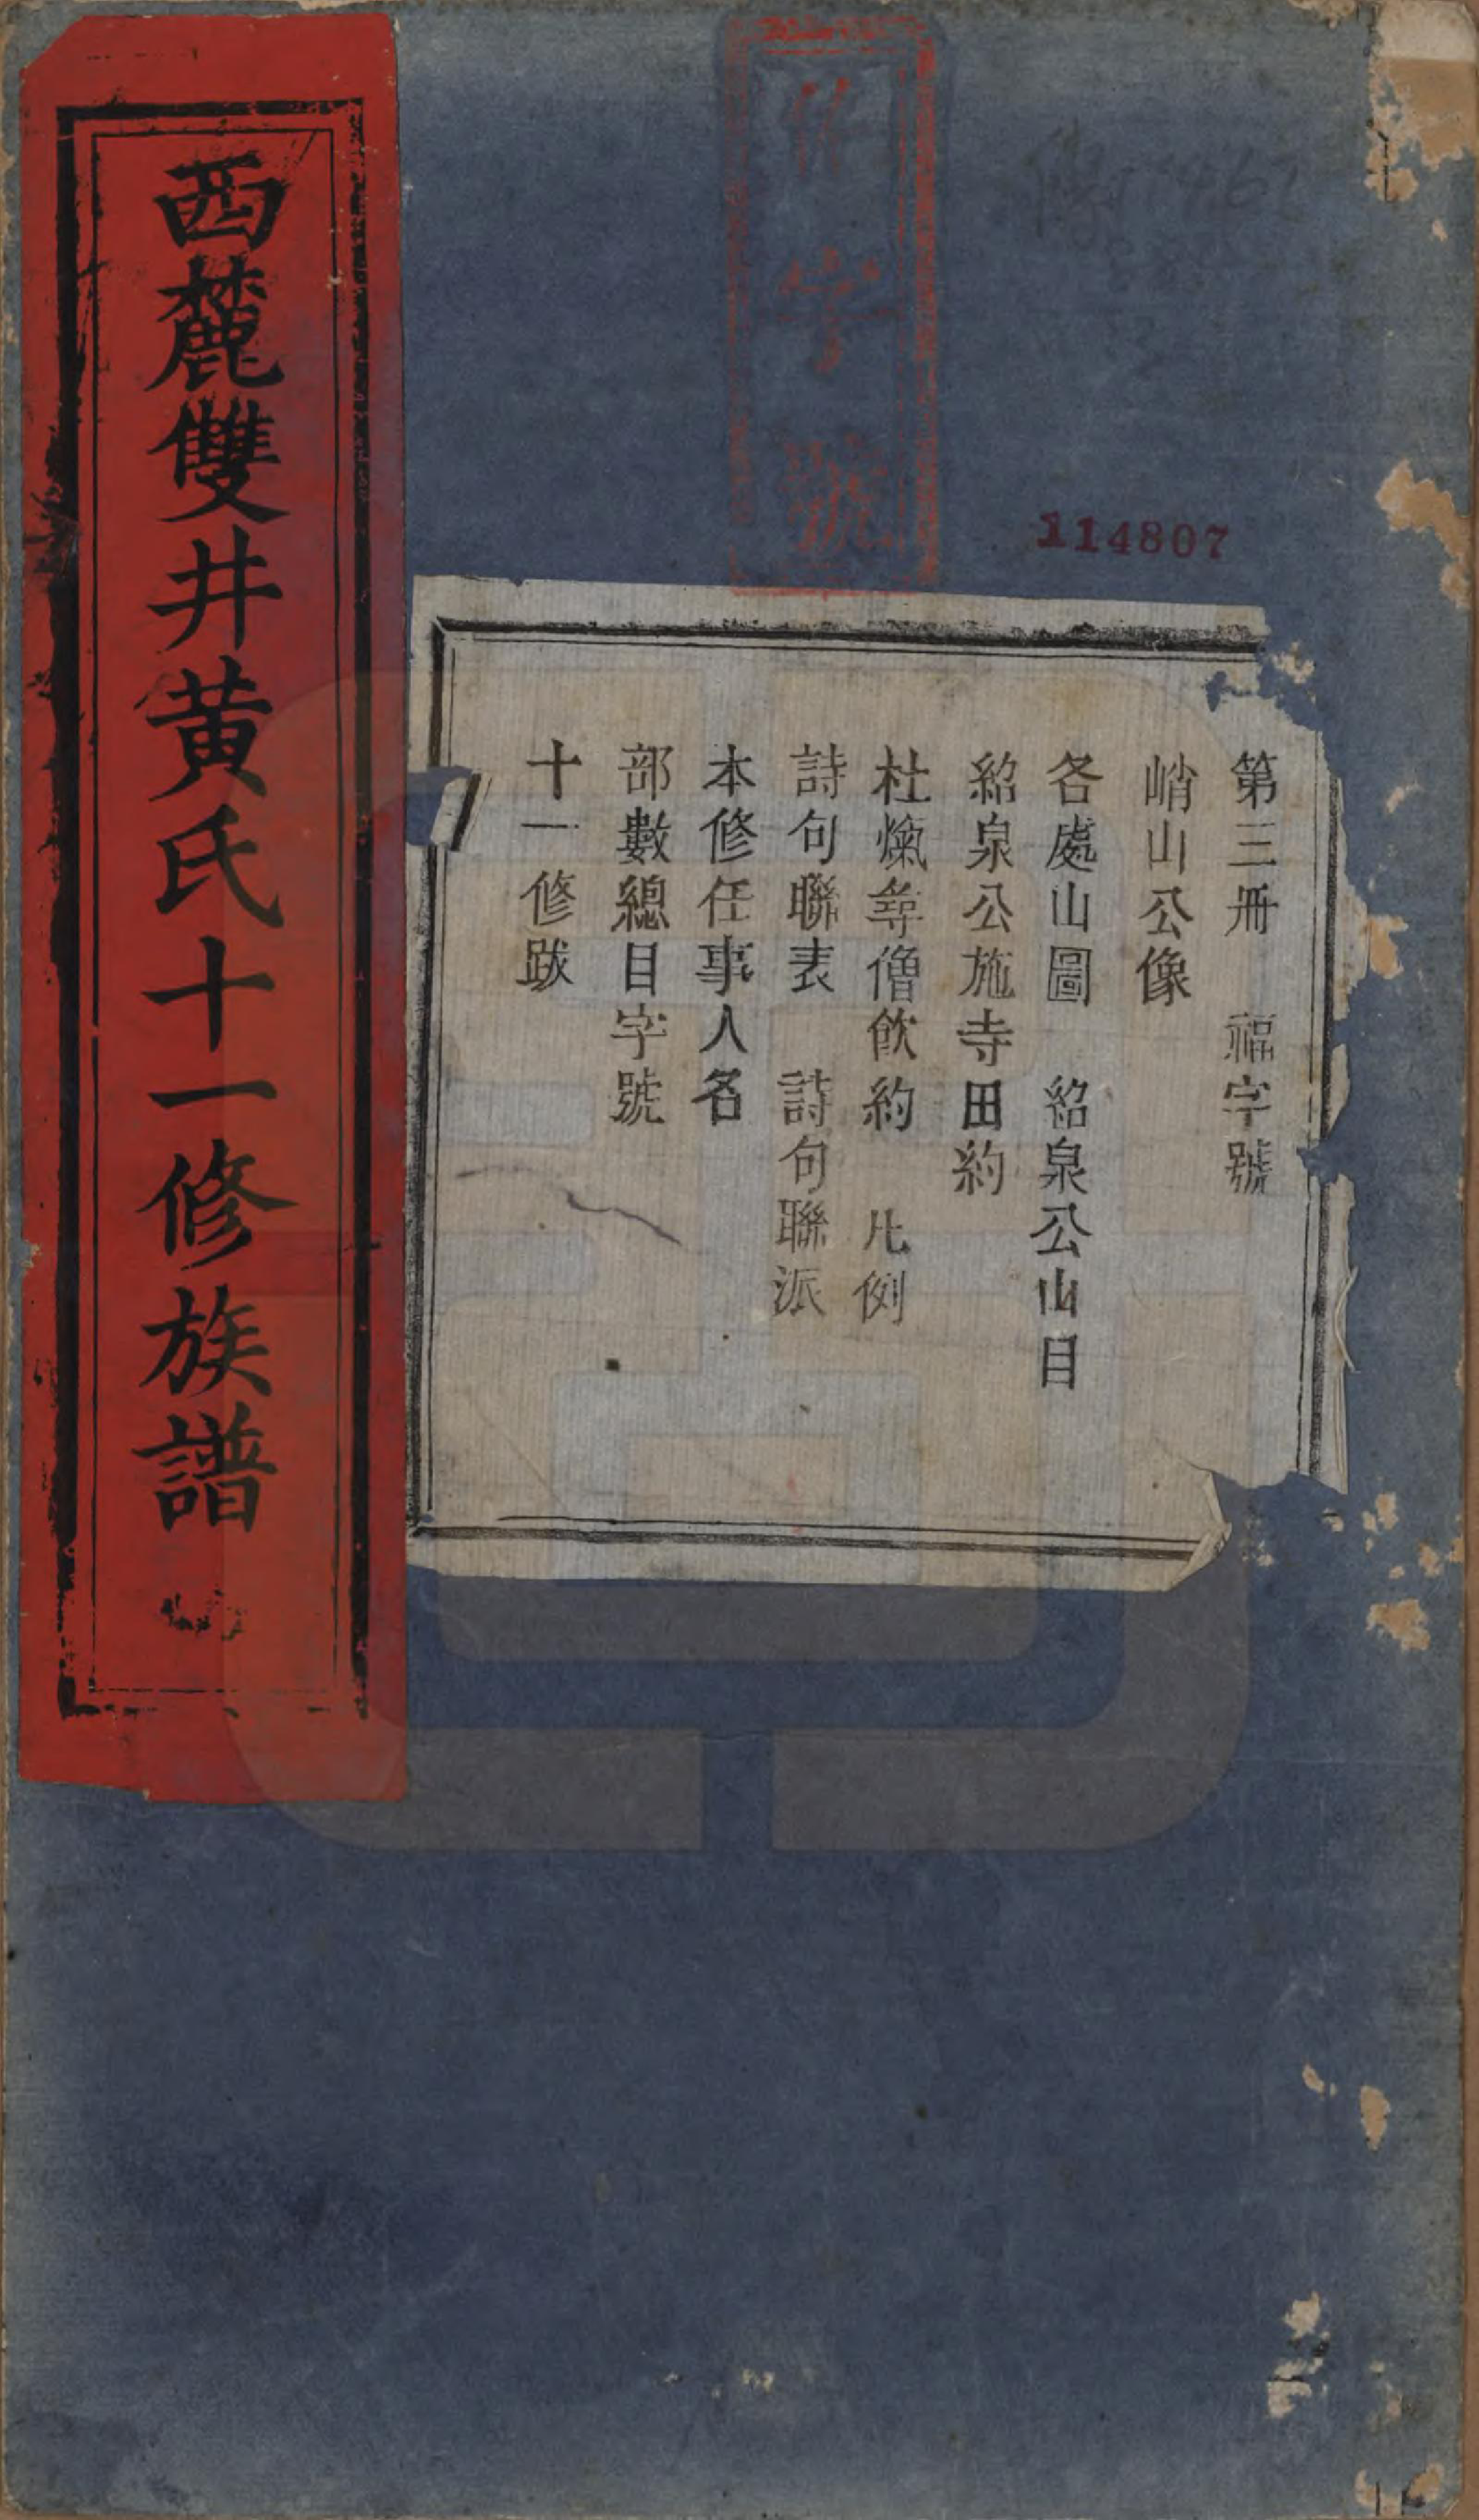 西麓雙井黃氏十一修族譜
字號
114807
第三冊　福字號
峭山公像
各處山圖　紹泉公山目
紹泉公施寺田約
杜㷄尋僧飲約　凡例
詩句聯表　詩句聯派
本修任事人名
部數總目字號
十一修跋